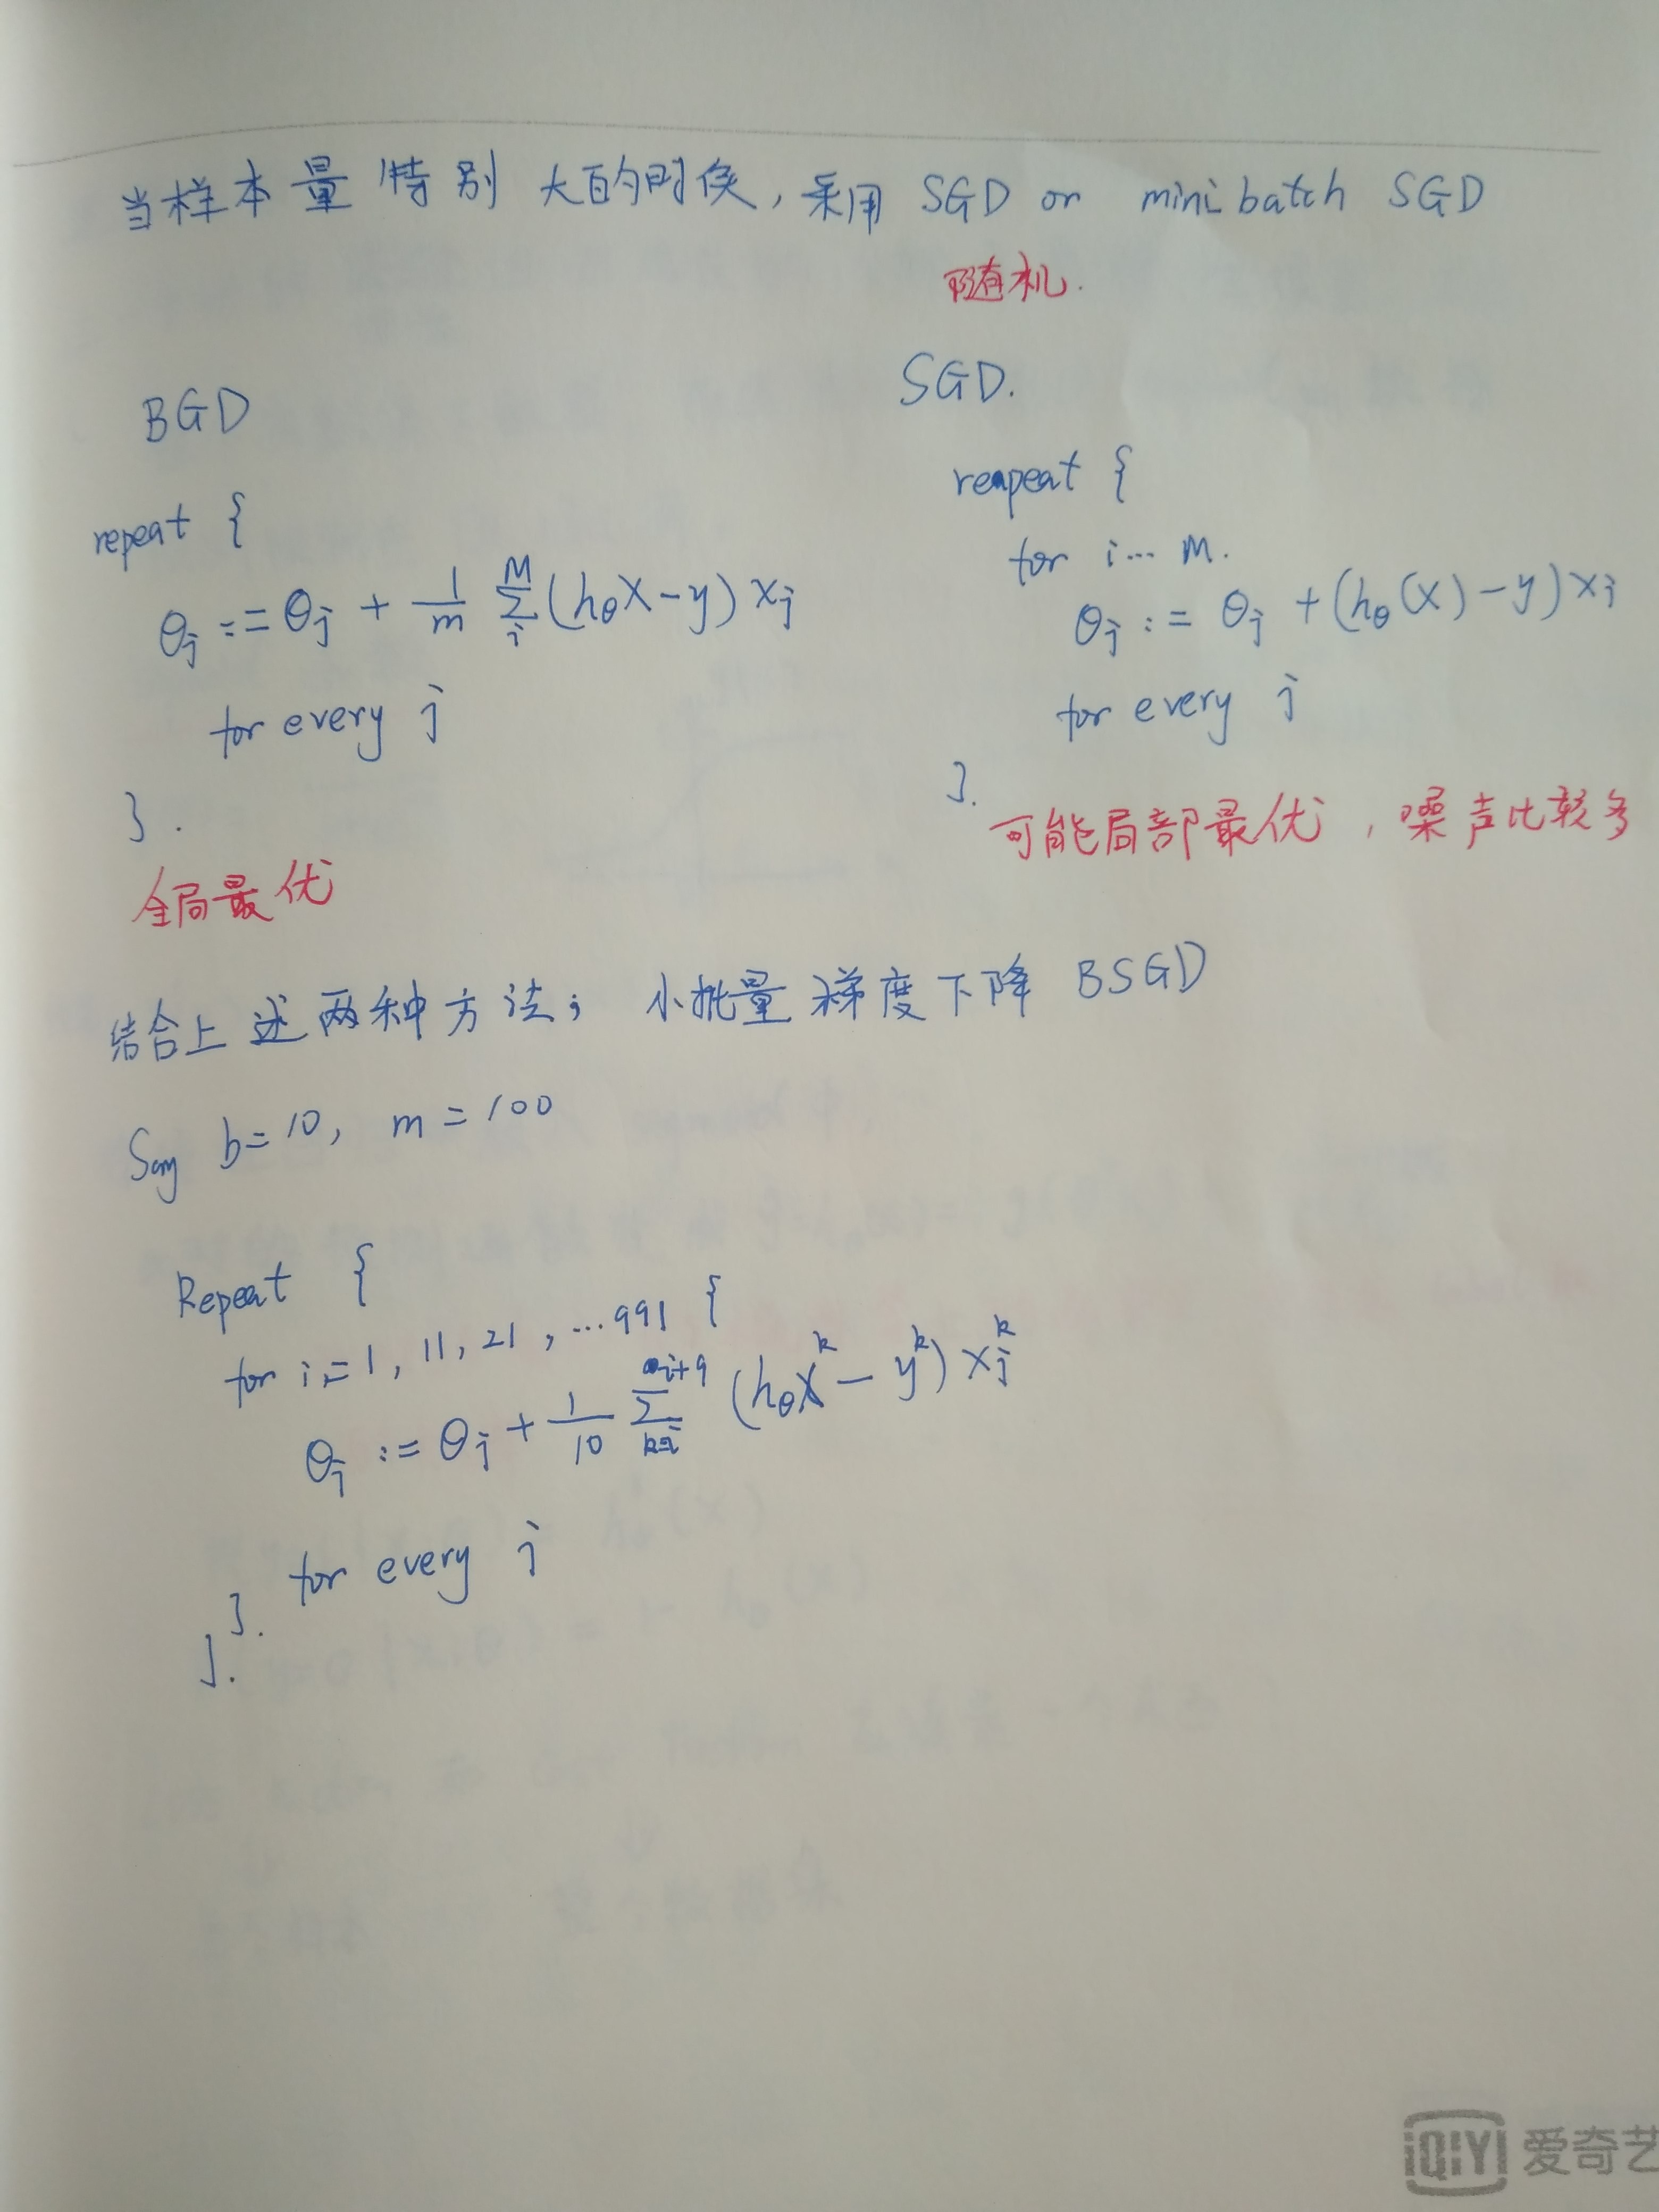 当样本量特别大的时候,采用 SGD or mini batch SGD
随机.
BGD
repeat {
θj := θj + 1/m Σ_i^M (hθX-y) xj
for every j
}.
全局最优
SGD.
reapeat {
for i... M.
θj := θj + (hθ(X)-y) xj
for every j
}.
可能局部最优,噪声比较多
结合上述两种方法; 小批量梯度下降 BSGD
Say b=10, m=100
Repeat {
for i=1, 11, 21, ...991 {
θj := θj + 1/10 Σ_{k=i}^{i+9} (hθx^k - y^k) xj^k
for every j
}.
}.
iQIYI 爱奇艺